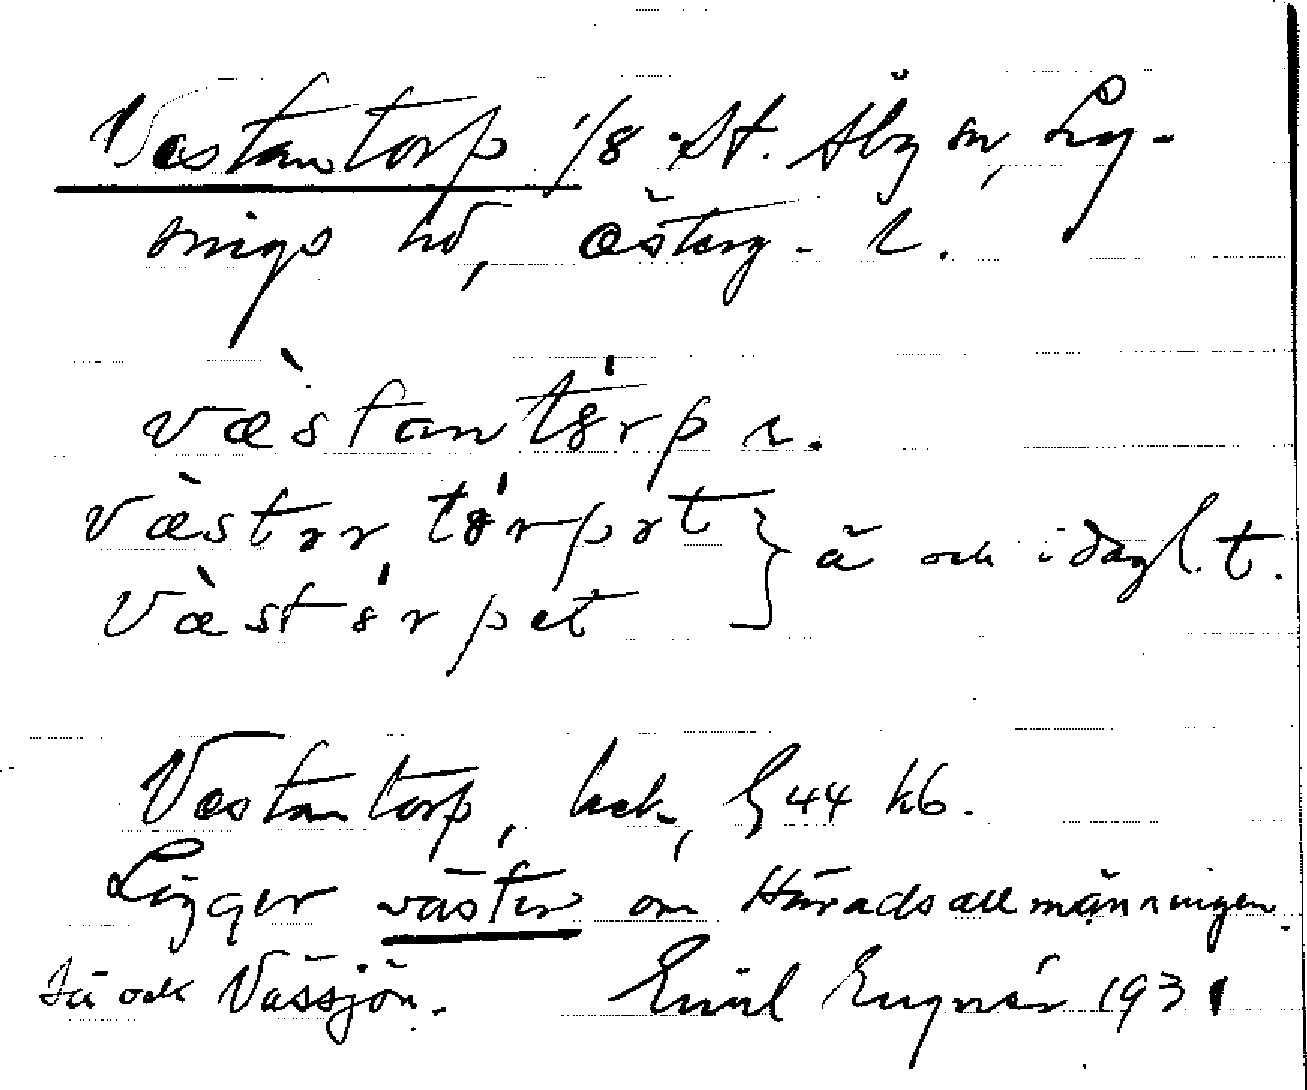 Västantorp 1/8 St. Åby sn, Ly-
sings hd, Österg. l.
væ̀stantȯrp r.
væ̀stər tȯrpət } ä och i dagl. t.
Væ̀stȯrpet
Västantorp, beb., G 44 kb.
Ligger väster om Häradsallmänningen.
Så och Vässjön. Emil Engnér 1931